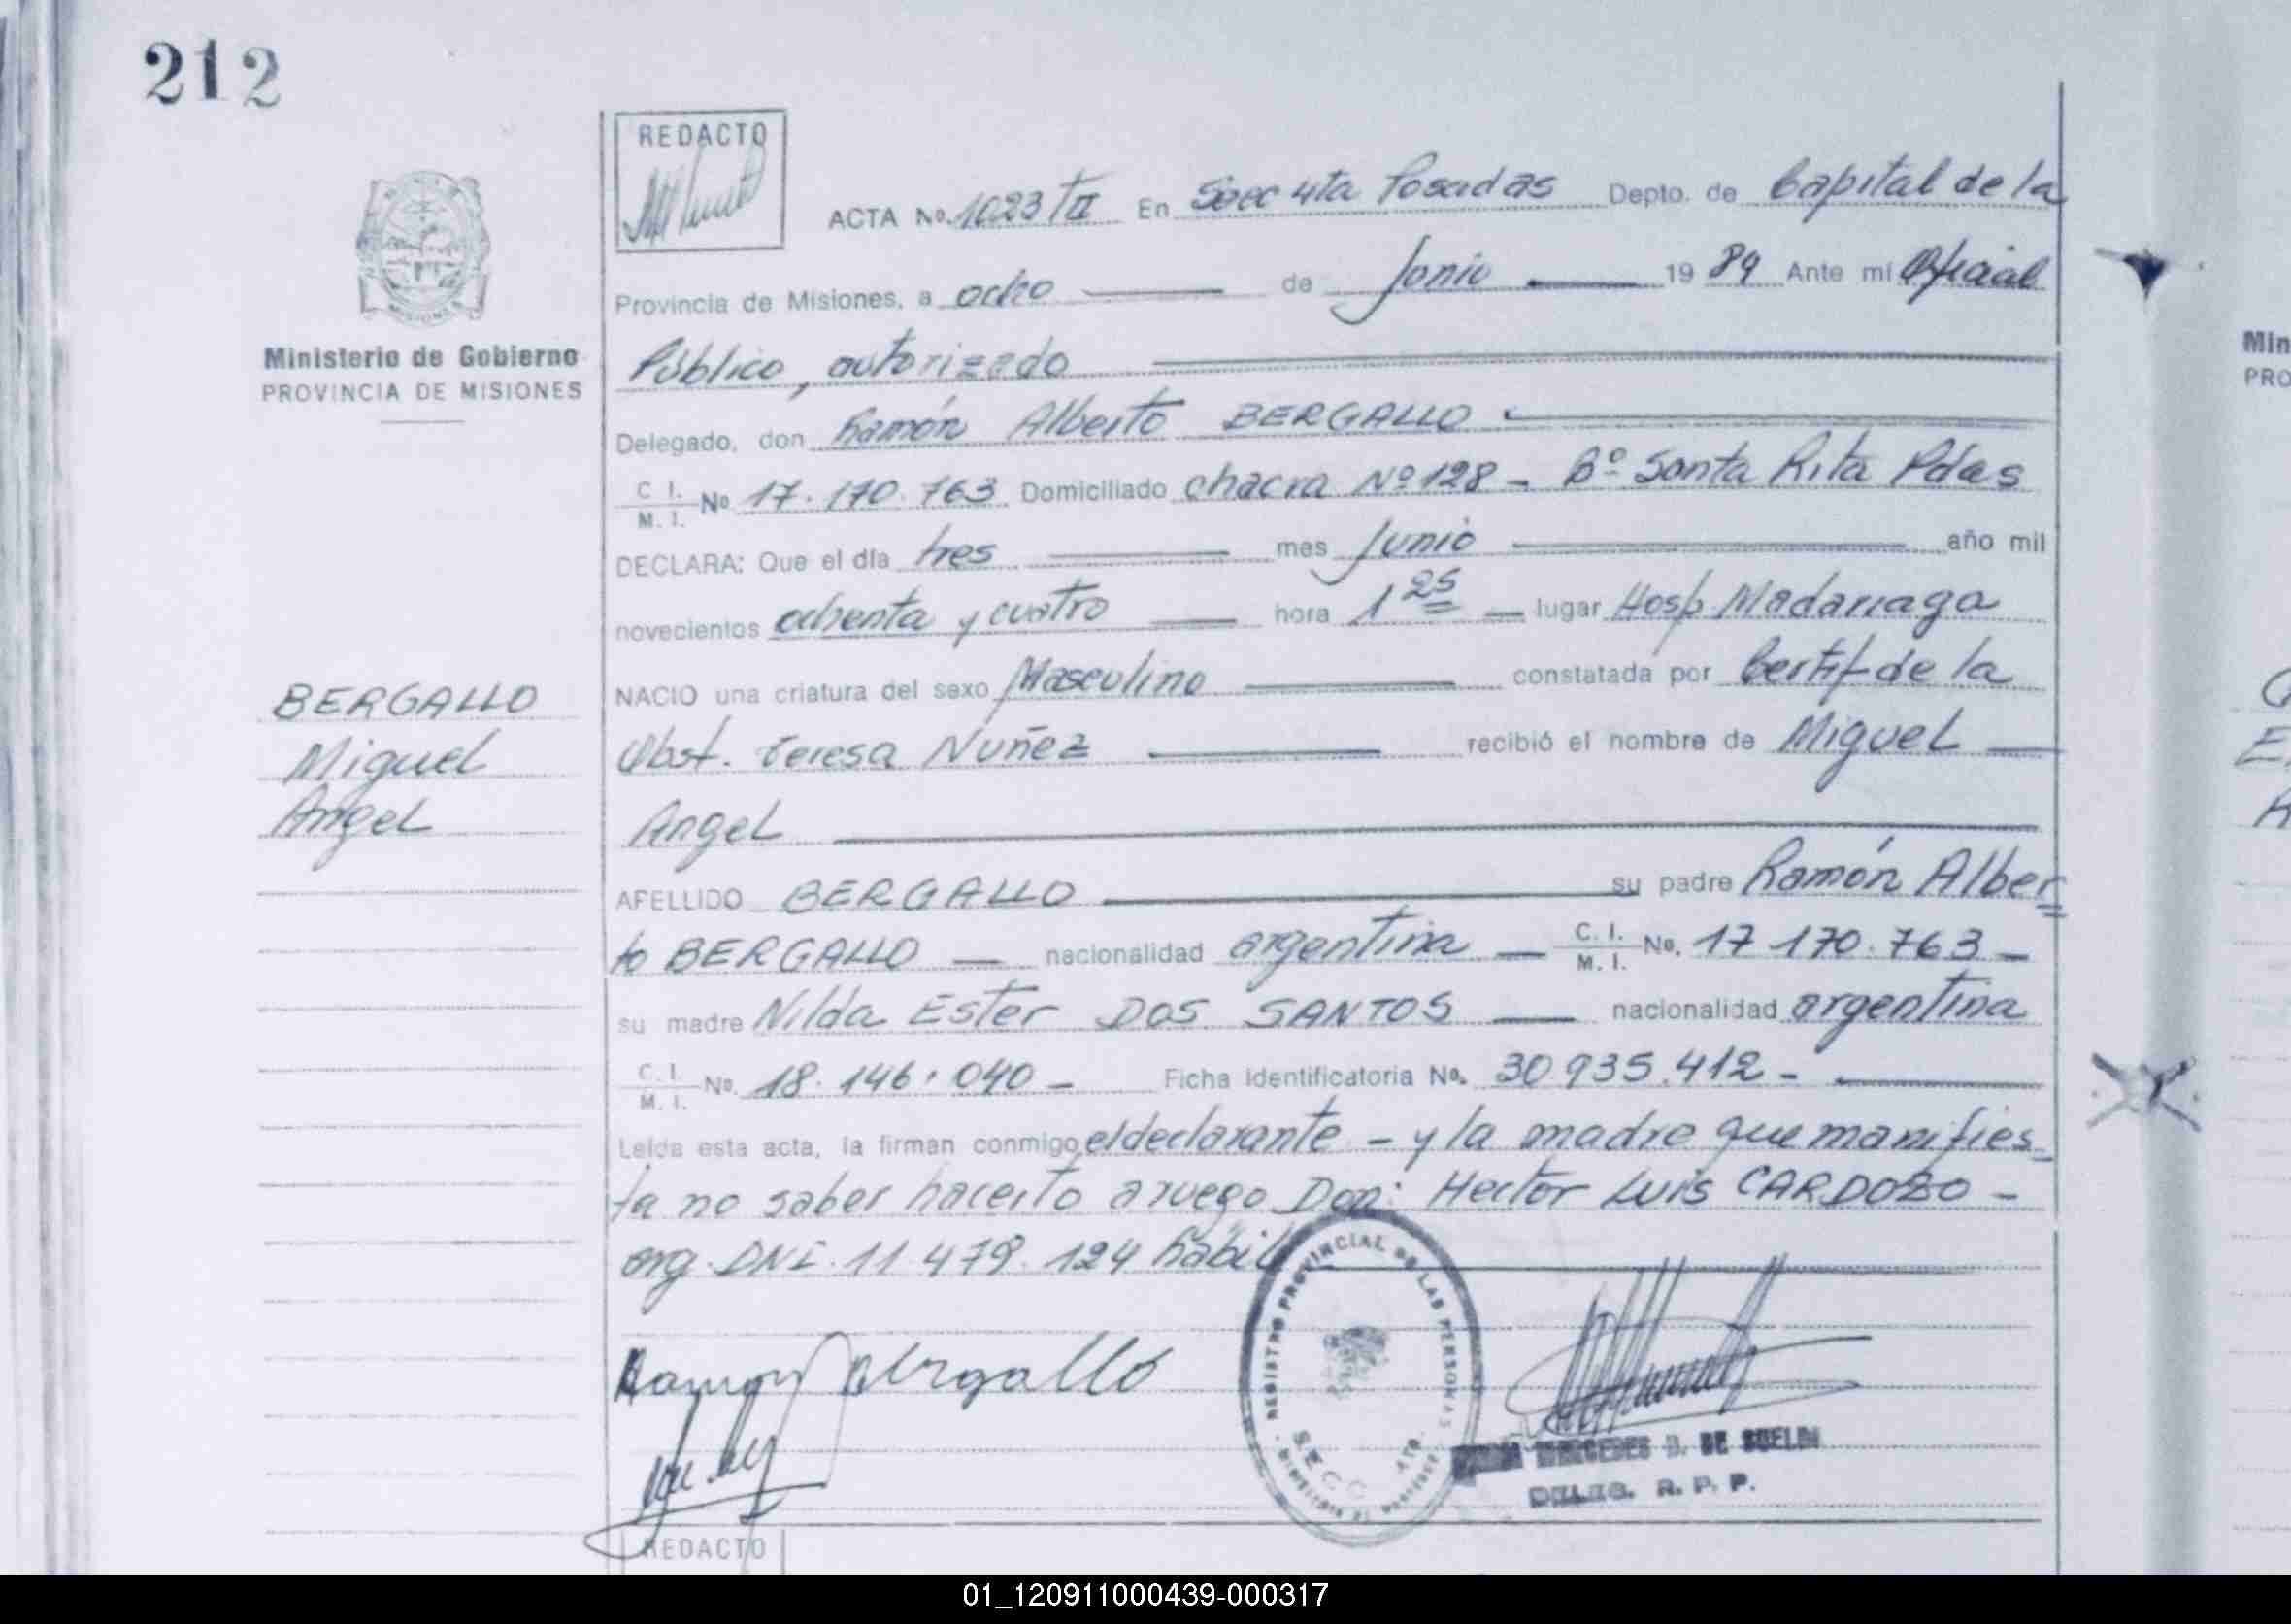 212
REDACTO
ACTA No. 1023 TII En Secc 4ta Posadas Depto. de Capital de la
Provincia de Misiones, a ocho de Junio 1984 Ante mí Oficial
Ministerio de Gobierno
PROVINCIA DE MISIONES
Público, autorizado
Delegado, don Ramón Alberto BERGALLO
C. I. M. I. No 17.170.763 Domiciliado chacra Nº 128 - Bº Santa Rita Pdas
DECLARA: Que el día tres mes Junio año mil
novecientos ochenta y cuatro hora 1 25 lugar Hosp Madariaga
NACIO una criatura del sexo Masculino constatada por Certif de la
Obst. Teresa Nuñez recibió el nombre de Miguel
Angel
BERGALLO
Miguel
Angel
APELLIDO BERGALLO su padre Ramón Alber
to BERGALLO nacionalidad argentina C. I. M. I. No. 17 170.763
su madre Nilda Ester DOS SANTOS nacionalidad argentina
C. I. M. I. No. 18.146.040 - Ficha Identificatoria No. 30 935.412 -
Leída esta acta, la firman conmigo el declarante - y la madre que manifies
ta no saber hacerlo a ruego Don: Hector Luis CARDOZO -
arg. DNI. 11.479.124 hábil
REGISTRO PROVINCIAL DE LAS PERSONAS
SECC 4TA
Ramon Bergallo
MERCEDES D. DE
DELEG. R. P. P.
REDACTO
Min
PRO
01_120911000439-000317